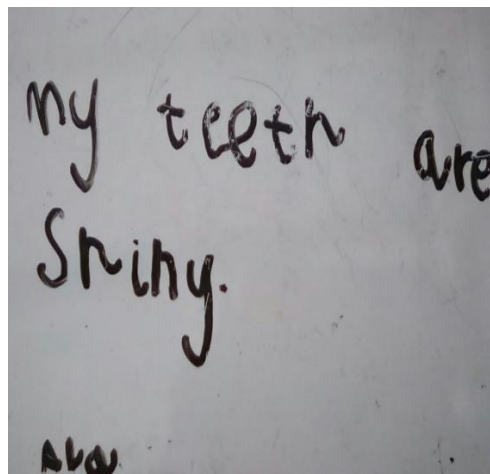 my teeth are
Shiny.